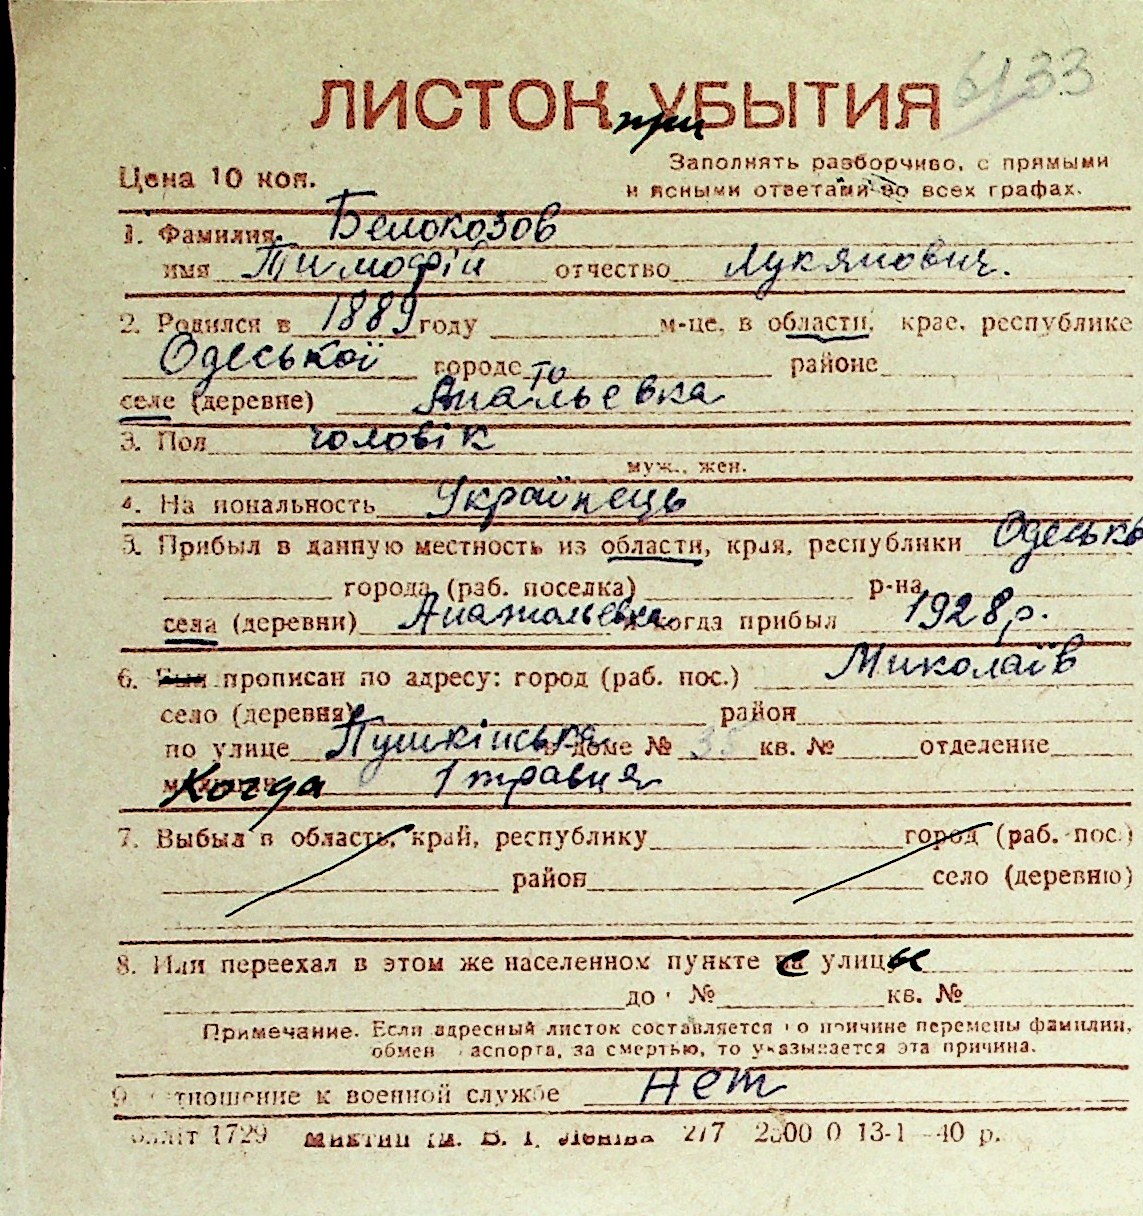 6133
ЛИСТОК УБЫТИЯ
при
Цена 10 коп.
Заполнять разборчиво, с прямыми
и ясными ответами во всех графах.
1. Фамилия Белокозов
имя Тимофій отчество Лукянович.
2. Родился в 1889 году м-це, в области, крае, республике
Одеської городе районе
селе (деревне) Анатольевка
3. Пол чоловік
муж., жен.
4. Национальность Українець
5. Прибыл в данную местность из области, края, республики Одесько
города (раб. поселка) р-на
села (деревни) Анатольевка и когда прибыл 1928 р.
6. Был прописан по адресу: город (раб. пос.) Миколаїв
село (деревня) район
по улице Пушкінська в доме № 35 кв. № отделение
Когда 1 травня
7. Выбыл в область, край, республику город (раб. пос.)
район село (деревню)
8. Или переехал в этом же населенном пункте с улицы
до № кв. №
Примечание. Если адресный листок составляется по причине перемены фамилии,
обмен паспорта, за смертью, то указывается эта причина.
9. Отношение к военной службе Нет
1729 В. І. Леніна 217 13-1—40 р.